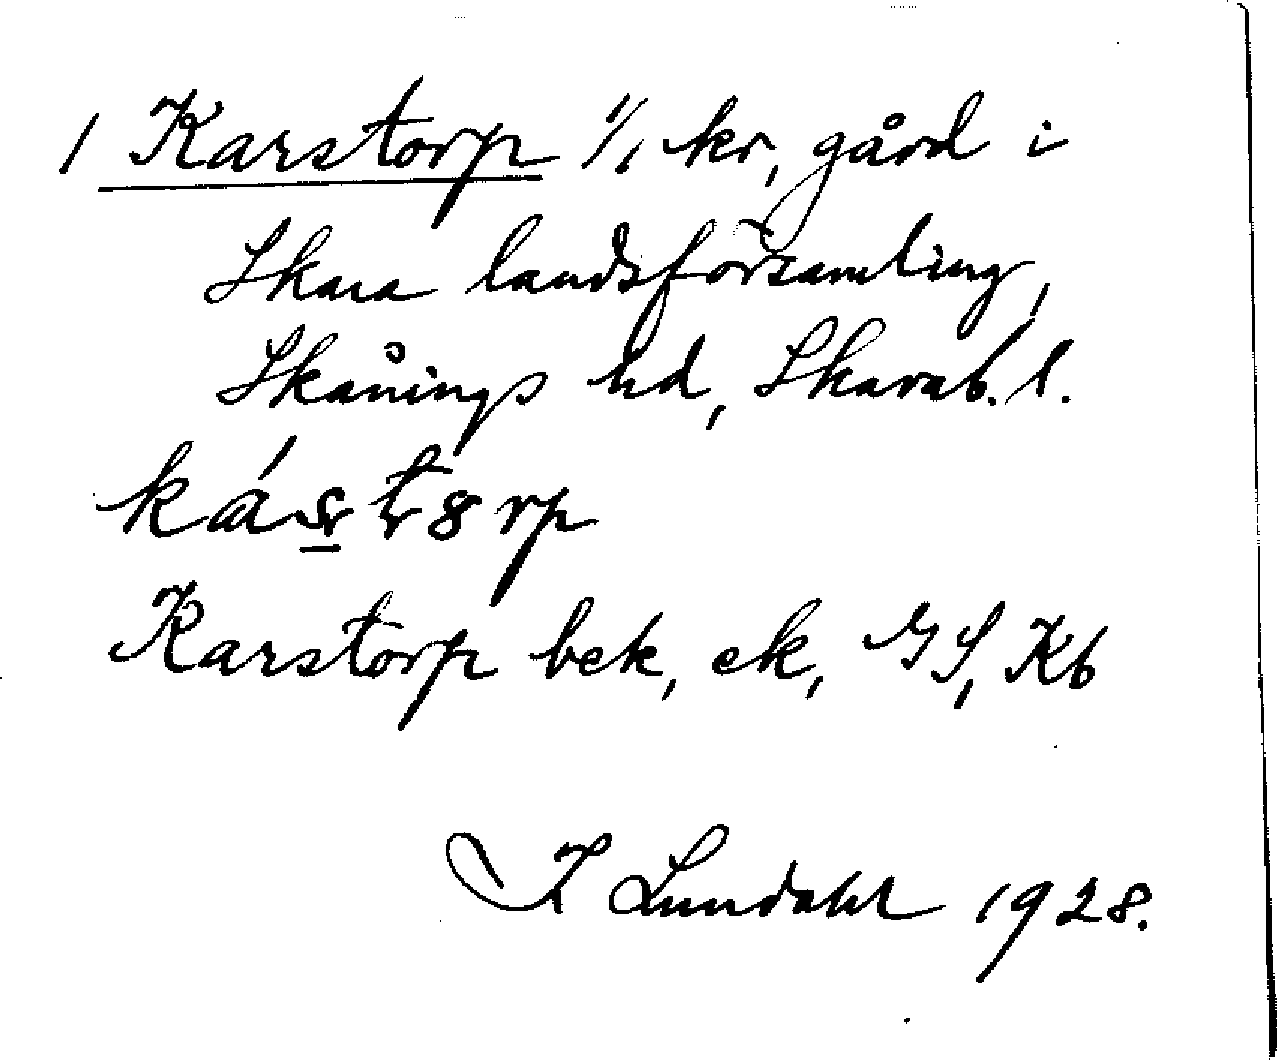 1 Karstorp 1/1 kr, gård i
Skara landsförsamling,
Skånings hd, Skarab. l.
Karstorp bek, ek, GS, Kb
Lundahl 1928.